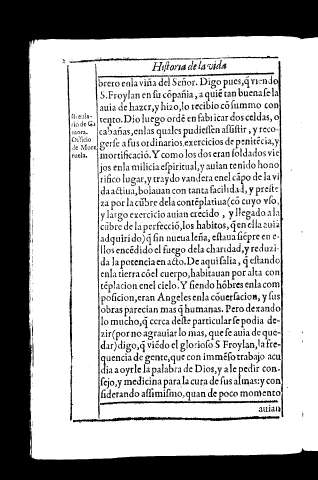 Historia de la vida
brero enla viña del Señor. Digo pues, q̃ viendo
S. Froylan en su cõpañia, a quiẽ tan buena se la
auia de hazer, y hizo, lo recibio cõ summo con
tento. Dio luego ordẽ en fabricar dos celdas, o
cabañas, enlas quales pudiessen assistir, y reco-
gerse a sus ordinarios exercicios de penitẽcia, y
mortificació. Y como los dos eran soldados vie
jos enla milicia espiritual, y auian tenido hono
rifico lugar, y traydo vandera enel cãpo de la vi
da actiua, bolauan con tanta facilidad, y preste
za por la cũbre dela contẽplatiua (cõ cuyo vso,
y largo exercicio auian crecido, y llegado a la
cũbre de la perfecciõ, los habitos, q̃ en ella auia
adquirido) q̃ sin nueua leña, estaua siẽpre en e-
llos encẽdido el fuego dela charidad, y reduzi-
da la potencia en acto. De aqui salia, q̃ estando
enla tierra cõel cuerpo, habitauan por alta con
tẽplacion enel cielo. Y siendo hõbres enla com
posicion, eran Angeles enla cõuersacion, y sus
obras parecian mas q̃ humanas. Pero dexando
lo mucho, q̃ cerca deste particular se podia de-
zir (por no agrauiar lo mas, que se auia de que-
dar) digo, q̃ viẽdo el glorioso S Froylan, la fre-
quencia de gente, que con immẽso trabajo acu
dia a oyrle la palabra de Dios, y a le pedir con-
sejo, y medicina para la cura de sus almas: y con
siderando assimismo, quan de poco momento
auian